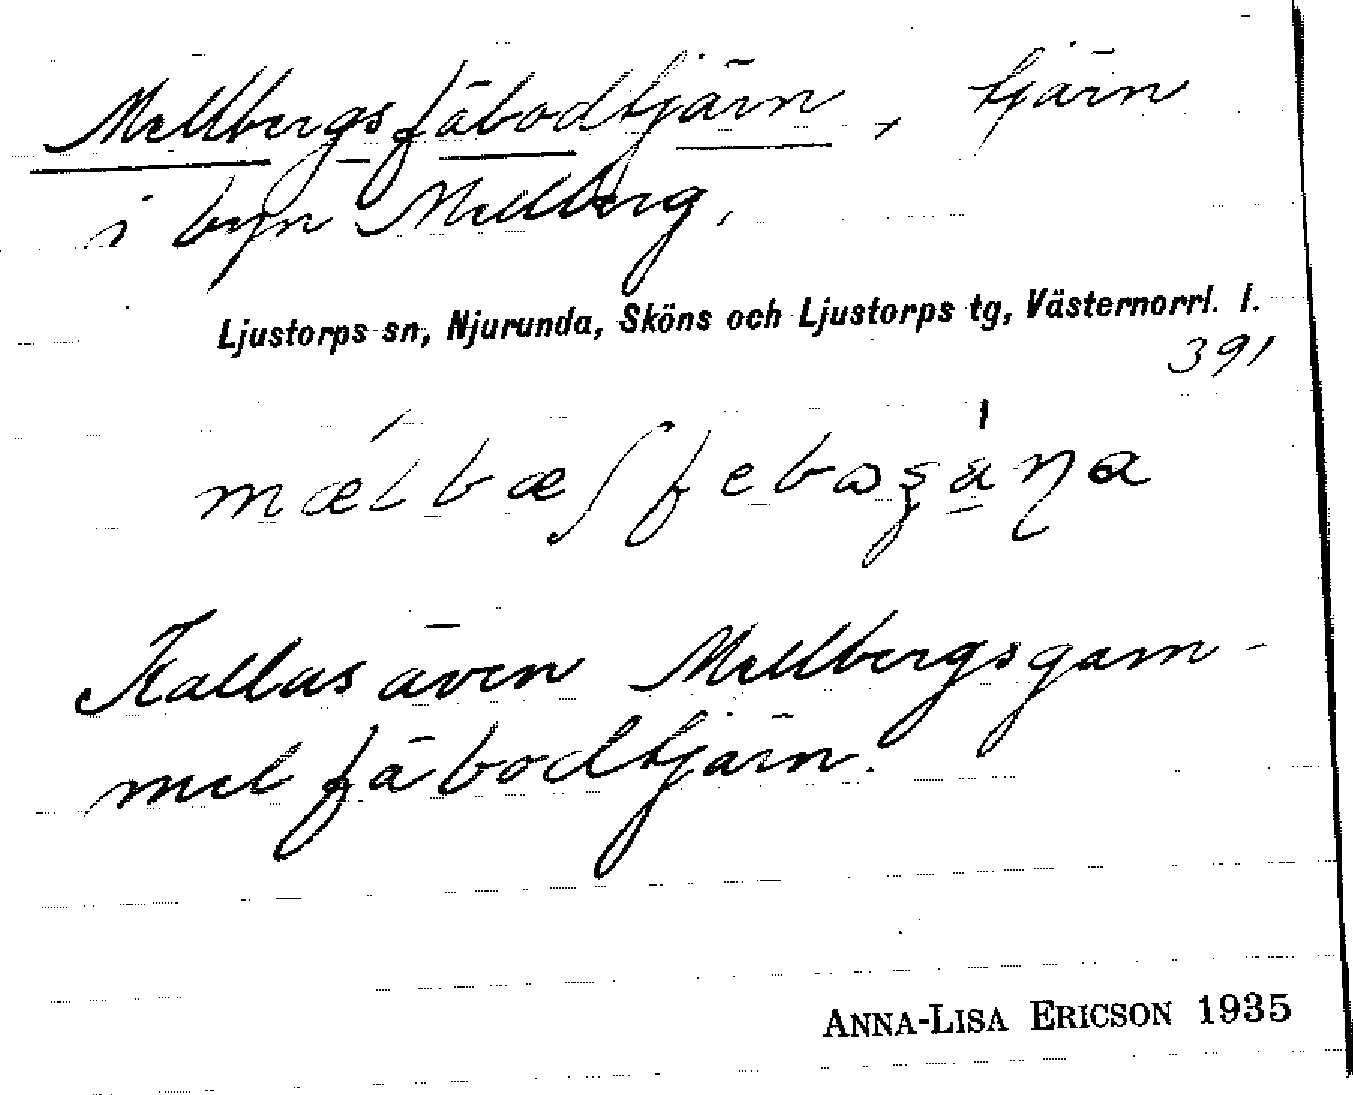 Mellbergsfäbodtjärn, tjärn
i byn Mellberg,
Ljustorps sn, Njurunda, Sköns och Ljustorps tg, Västernorrl. l.
391
Kallas även Mellbergsgam-
melfäbodtjärn.
ANNA-LISA ERICSON 1935